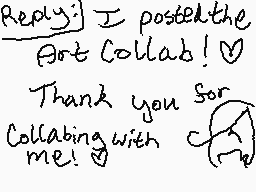 Reply: I posted the
Art Collab! ♡
Thank you for
Collabing with
me! ♡